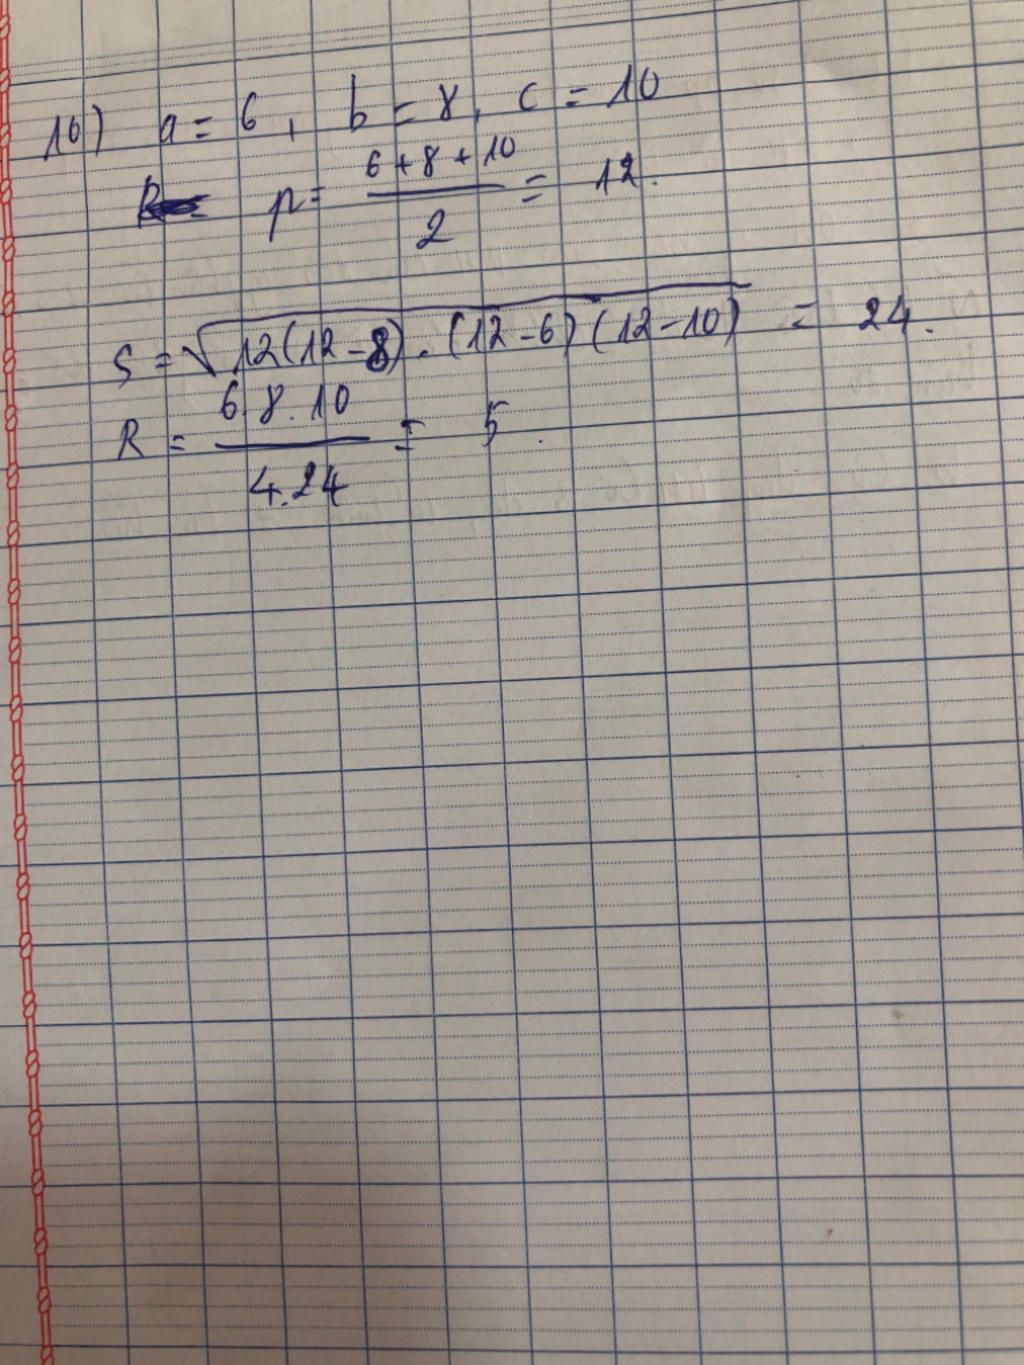 16) a = 6, b = 8, c = 10
p = \frac{6+8+10}{2} = 12.
S = \sqrt{12(12-8).(12-6)(12-10)} = 24.
R = \frac{6.8.10}{4.24} = 5.